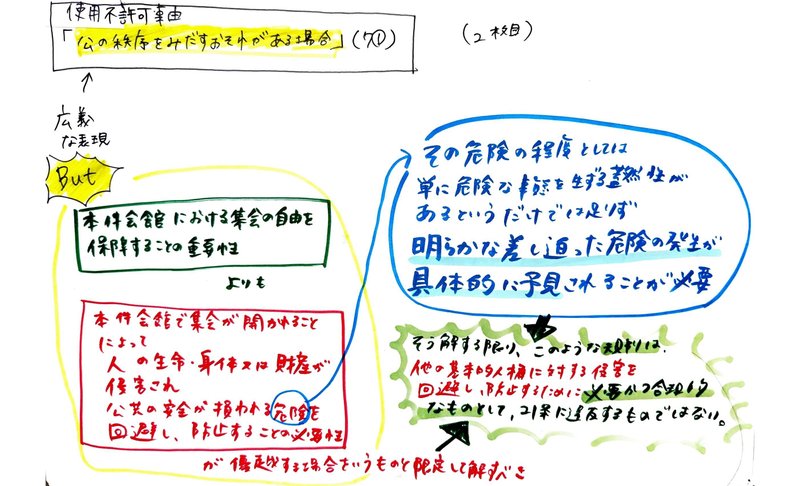 使用不許可事由
「公の秩序をみだすおそれがある場合」(7①)
(2枚目)
広義
な表現
But
本件会館における集会の自由を
保障することの重要性
よりも
本件会館で集会が開かれること
によって
人の生命・身体又は財産が
侵害され
公共の安全が損われる危険を
回避し、防止することの必要性
が優越する場合をいうものと限定して解すべき
その危険の程度としては
単に危険な事態を生ずる蓋然性が
あるというだけでは足りず
明らかな差し迫った危険の発生が
具体的に予見されることが必要
そう解する限り、このような規制は、
他の基本的人権に対する侵害を
回避し、防止するために必要かつ合理的
なものとして、21条に違反するものではない。